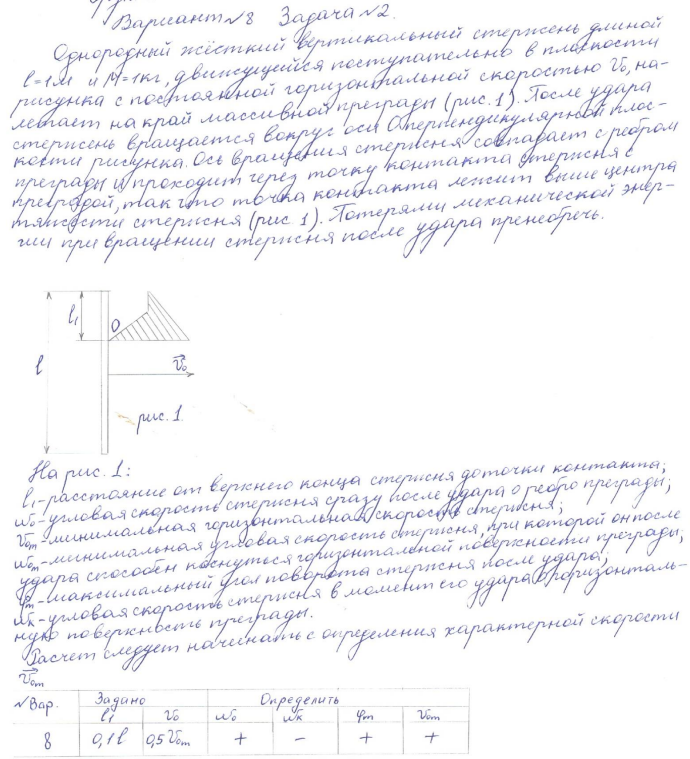 Вариант №8 Задача №2.
Однородный жёсткий вертикальный стержень длиной
l=1м и M=1кг, движущейся поступательно в плоскости
рисунка с постоянной горизонтальной скоростью V₀, на-
летает на край массивной преграды (рис. 1). После удара
стержень вращается вокруг оси О перпендикулярной плос-
кости рисунка. Ось вращения стержня совпадает с ребром
преграды и проходит через точку контакта стержня с
преградой, так что точка контакта лежит выше центра
тяжести стержня (рис 1). Потерями механической энер-
гии при вращении стержня после удара пренебречь.
l₁
O
l
V₀
рис. 1
На рис. 1:
l₁-расстояние от верхнего конца стержня до точки контакта;
ω₀-угловая скорость стержня сразу после удара о ребро преграды;
V₀m-минимальная горизонтальная скорость стержня;
ω₀m-минимальная угловая скорость стержня, при которой он после
удара способен коснуться горизонтальной поверхности преграды;
φm-максимальный угол поворота стержня после удара;
ωк-угловая скорость стержня в момент его удара о горизонталь-
ную поверхность преграды.
Расчет следует начинать с определения характерной скорости
V₀m
№Вар. Задано Определить
l₁ V₀ ω₀ ωк φm V₀m
8 0,1l 0,5V₀m + - + +